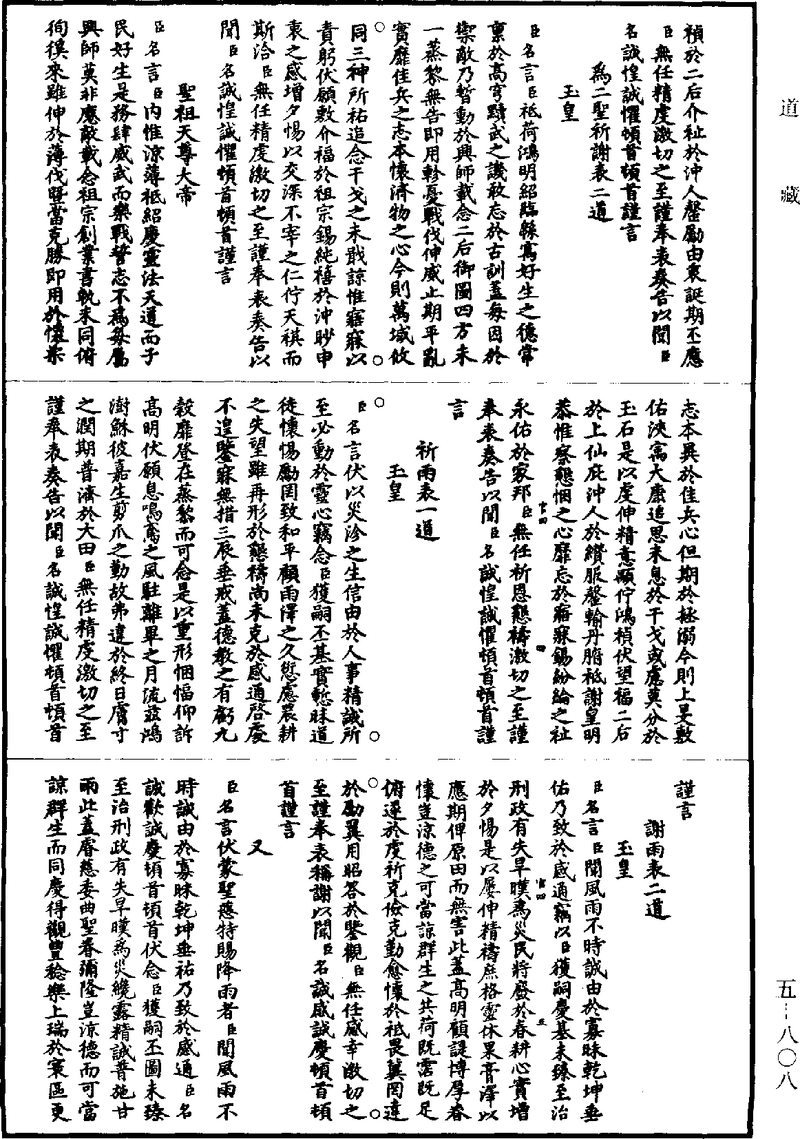 道藏
禎於二后介祉於沖人罄勵由衷誕期丕應
臣無任精虔激切之至謹奉表奏告以聞臣
名誠惶誠懼頓首頓首謹言
為二聖祈謝表二道
玉皇
臣名言臣祗荷鴻明紹臨縣寓好生之德常
稟於高穹黷武之譏敢忘於古訓蓋每因於
禦敵乃暫動於興師載念二后御圖四方未
一蒸黎無告即用軫憂戰伐伸威止期平亂
實靡佳兵之志本懷濟物之心今則萬域攸
同三神所祐追念干戈之未戢諒惟寤寐以
責躬伏願敷介福於祖宗錫純禧於沖眇申
衷之感增夕惕以交深不宰之仁佇天祺而
斯洽臣無任精虔激切之至謹奉表奏告以
聞臣名誠惶誠懼頓首頓首謹言
聖祖天尊大帝
臣名言臣內惟涼薄祗紹慶靈法天道而子
民好生是務肆威武而樂戰誓志不為每屬
興師莫非應敵載念祖宗創業書軌未同俯
徇徯來雖伸於薄伐暨當克勝即用於懷柔
志本異於佳兵心但期於拯溺今則上旻敷
佑浹寓大康追思未息於干戈或慮莫分於
玉石是以虔伸精意顒佇鴻禎伏望福二后
於上仙庇沖人於纘服罄輸丹腑祗謝皇明
恭惟察懇悃之心靡忘於寤寐錫紛綸之祉
永佑於家邦臣無任祈恩懇禱激切之至謹
奉表奏告以聞臣名誠惶誠懼頓首頓首謹
言
祈雨表一道
玉皇
臣名言伏以災沴之生信由於人事精誠所
至必動於靈心竊念臣獲嗣丕基實慙昧道
徒懷惕勵罔致和平顧雨澤之久愆應農耕
之失望雖再形於懇禱尚未克於感通啓處
不遑鑒寐無措三辰垂戒蓋德教之有虧九
穀靡登在蒸黎而可念是以重形悃愊仰訴
高明伏願息鳴鳶之風駐離畢之月流茲鴻
澍穌彼嘉生剪爪之勤故弗違於終日膚寸
之潤期普濟於大田臣無任精虔激切之至
謹奉表奏告以聞臣名誠惶誠懼頓首頓首
謹言
謝雨表二道
玉皇
臣名言臣聞風雨不時誠由於寡昧乾坤垂
佑乃致於感通竊以臣獲嗣慶基未臻至治
刑政有失旱暵為災民將廢於春耕心實增
於夕惕是以屢伸精禱庶格靈休果膏澤以
應期俾原田而無害此蓋高明顧諟博厚眷
懷豈涼德之可當諒群生之共荷既霑既足
俯遂於虔祈克儉克勤愈懷於祗畏冀罔違
於勵翼用昭答於鑒觀臣無任感幸激切之
至謹奉表稱謝以聞臣名誠感誠慶頓首頓
首謹言
又
臣名言伏蒙聖慈特賜降雨者臣聞風雨不
時誠由於寡昧乾坤垂祐乃致於感通臣名
誠歡誠慶頓首頓首伏念臣獲嗣丕圖未臻
至治刑政有失旱暵為災纔露精誠普施甘
雨此蓋睿慈委曲聖眷彌隆豈涼德而可當
諒群生而同慶得觀豐稔樂上瑞於寰區更
五-八〇八